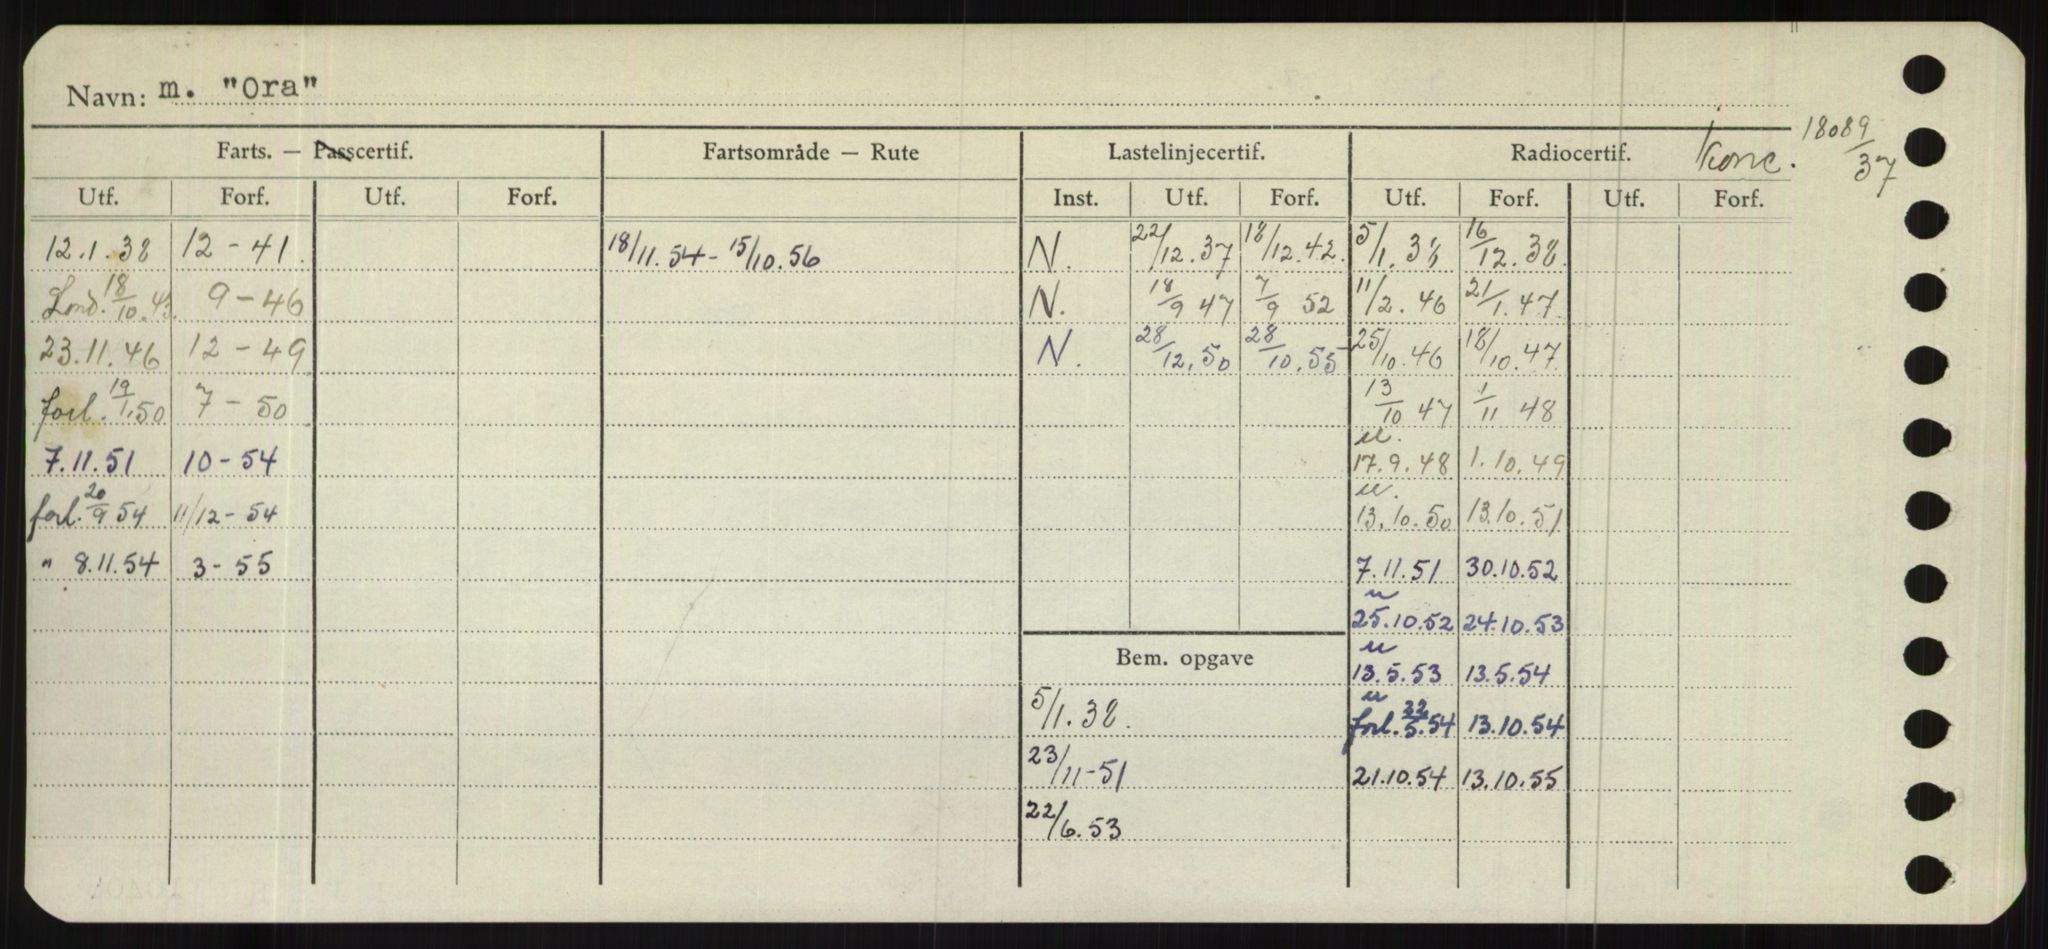 Navn: m. "Ora"
Farts. — Passcertif. Fartsområde — Rute Lastelinjecertif. Radiocertif. Konc. 18089/37
Utf. Forf. Utf. Forf. Inst. Utf. Forf. Utf. Forf. Utf. Forf.
12.1.38 12-41. 18/11.54 - 15/10.56 N. 22/12.37 18/12.42. 5/1.38 16/12.38.
Lond. 18/10.43. 9-46 N. 18/9 47 7/9 52 11/2.46 21/1.47.
23.11.46 12-49 N. 28/12.50 28/10.55 25/10.46 18/10.47.
forl. 19/1.50 7-50 13/10 47 1/11 48
u.
7.11.51 10-54 17.9.48 1.10.49
u.
forl. 20/9 54 11/12-54 13.10.50 13.10.51
" 8.11.54 3-55 7.11.51 30.10.52
u
25.10.52 24.10.53
u
Bem. opgave 13.5.53 13.5.54
u
5/1.38. forl. 22/5.54 13.10.54
23/11-51 21.10.54 13.10.55
22/6.53